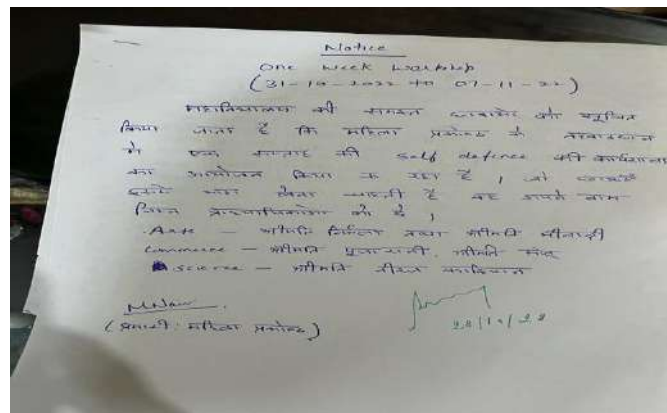 Notice
One Week Workshop
(31-10-2022 to 07-11-22)
महाविद्यालय की समस्त छात्राओं को सूचित
किया जाता है कि महिला प्रकोष्ठ के तत्वावधान
में एक सप्ताह की self defence की कार्यशाला
का आयोजन किया जा रहा है, जो छात्राएँ
इसमें भाग लेना चाहती हैं वह अपने नाम
निम्न प्राध्यापिकाओं को दें,
Arts – श्रीमति निर्मला तथा श्रीमति मीनाक्षी
Commerce – श्रीमति पूजा रानी, श्रीमति मंजू
Science – श्रीमति नीरज कादियान
(प्रभारी: महिला प्रकोष्ठ)
28/10/22